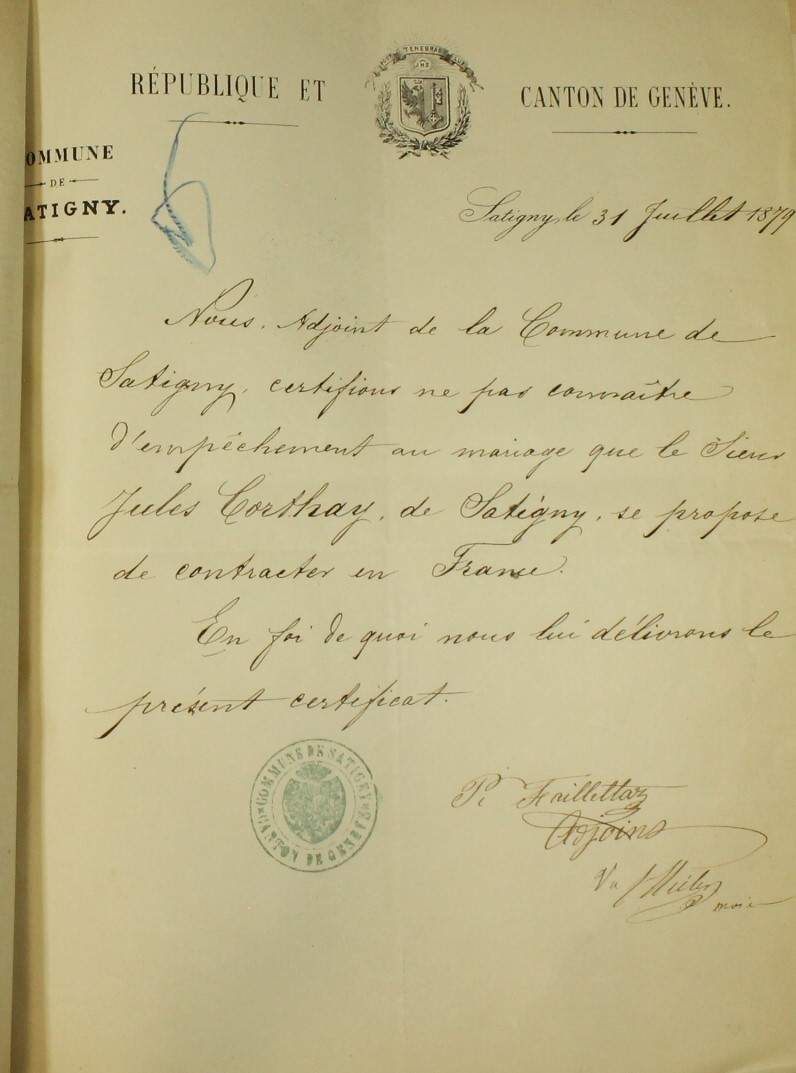 RÉPUBLIQUE ET CANTON DE GENÈVE.
POST TENEBRAS LUX
OMMUNE
DE
ATIGNY.
Satigny, le 31 Juillet 1879
Nous, Adjoint de la Commune de
Satigny, certifions ne pas connaître
d'empêchement au mariage que le Sieur
Jules Corthay, de Satigny, se propose
de contracter en France.
En foi de quoi nous lui délivrons le
présent certificat.
COMMUNE DE SATIGNY
CANTON DE GENÈVE
Adjoint
Vu